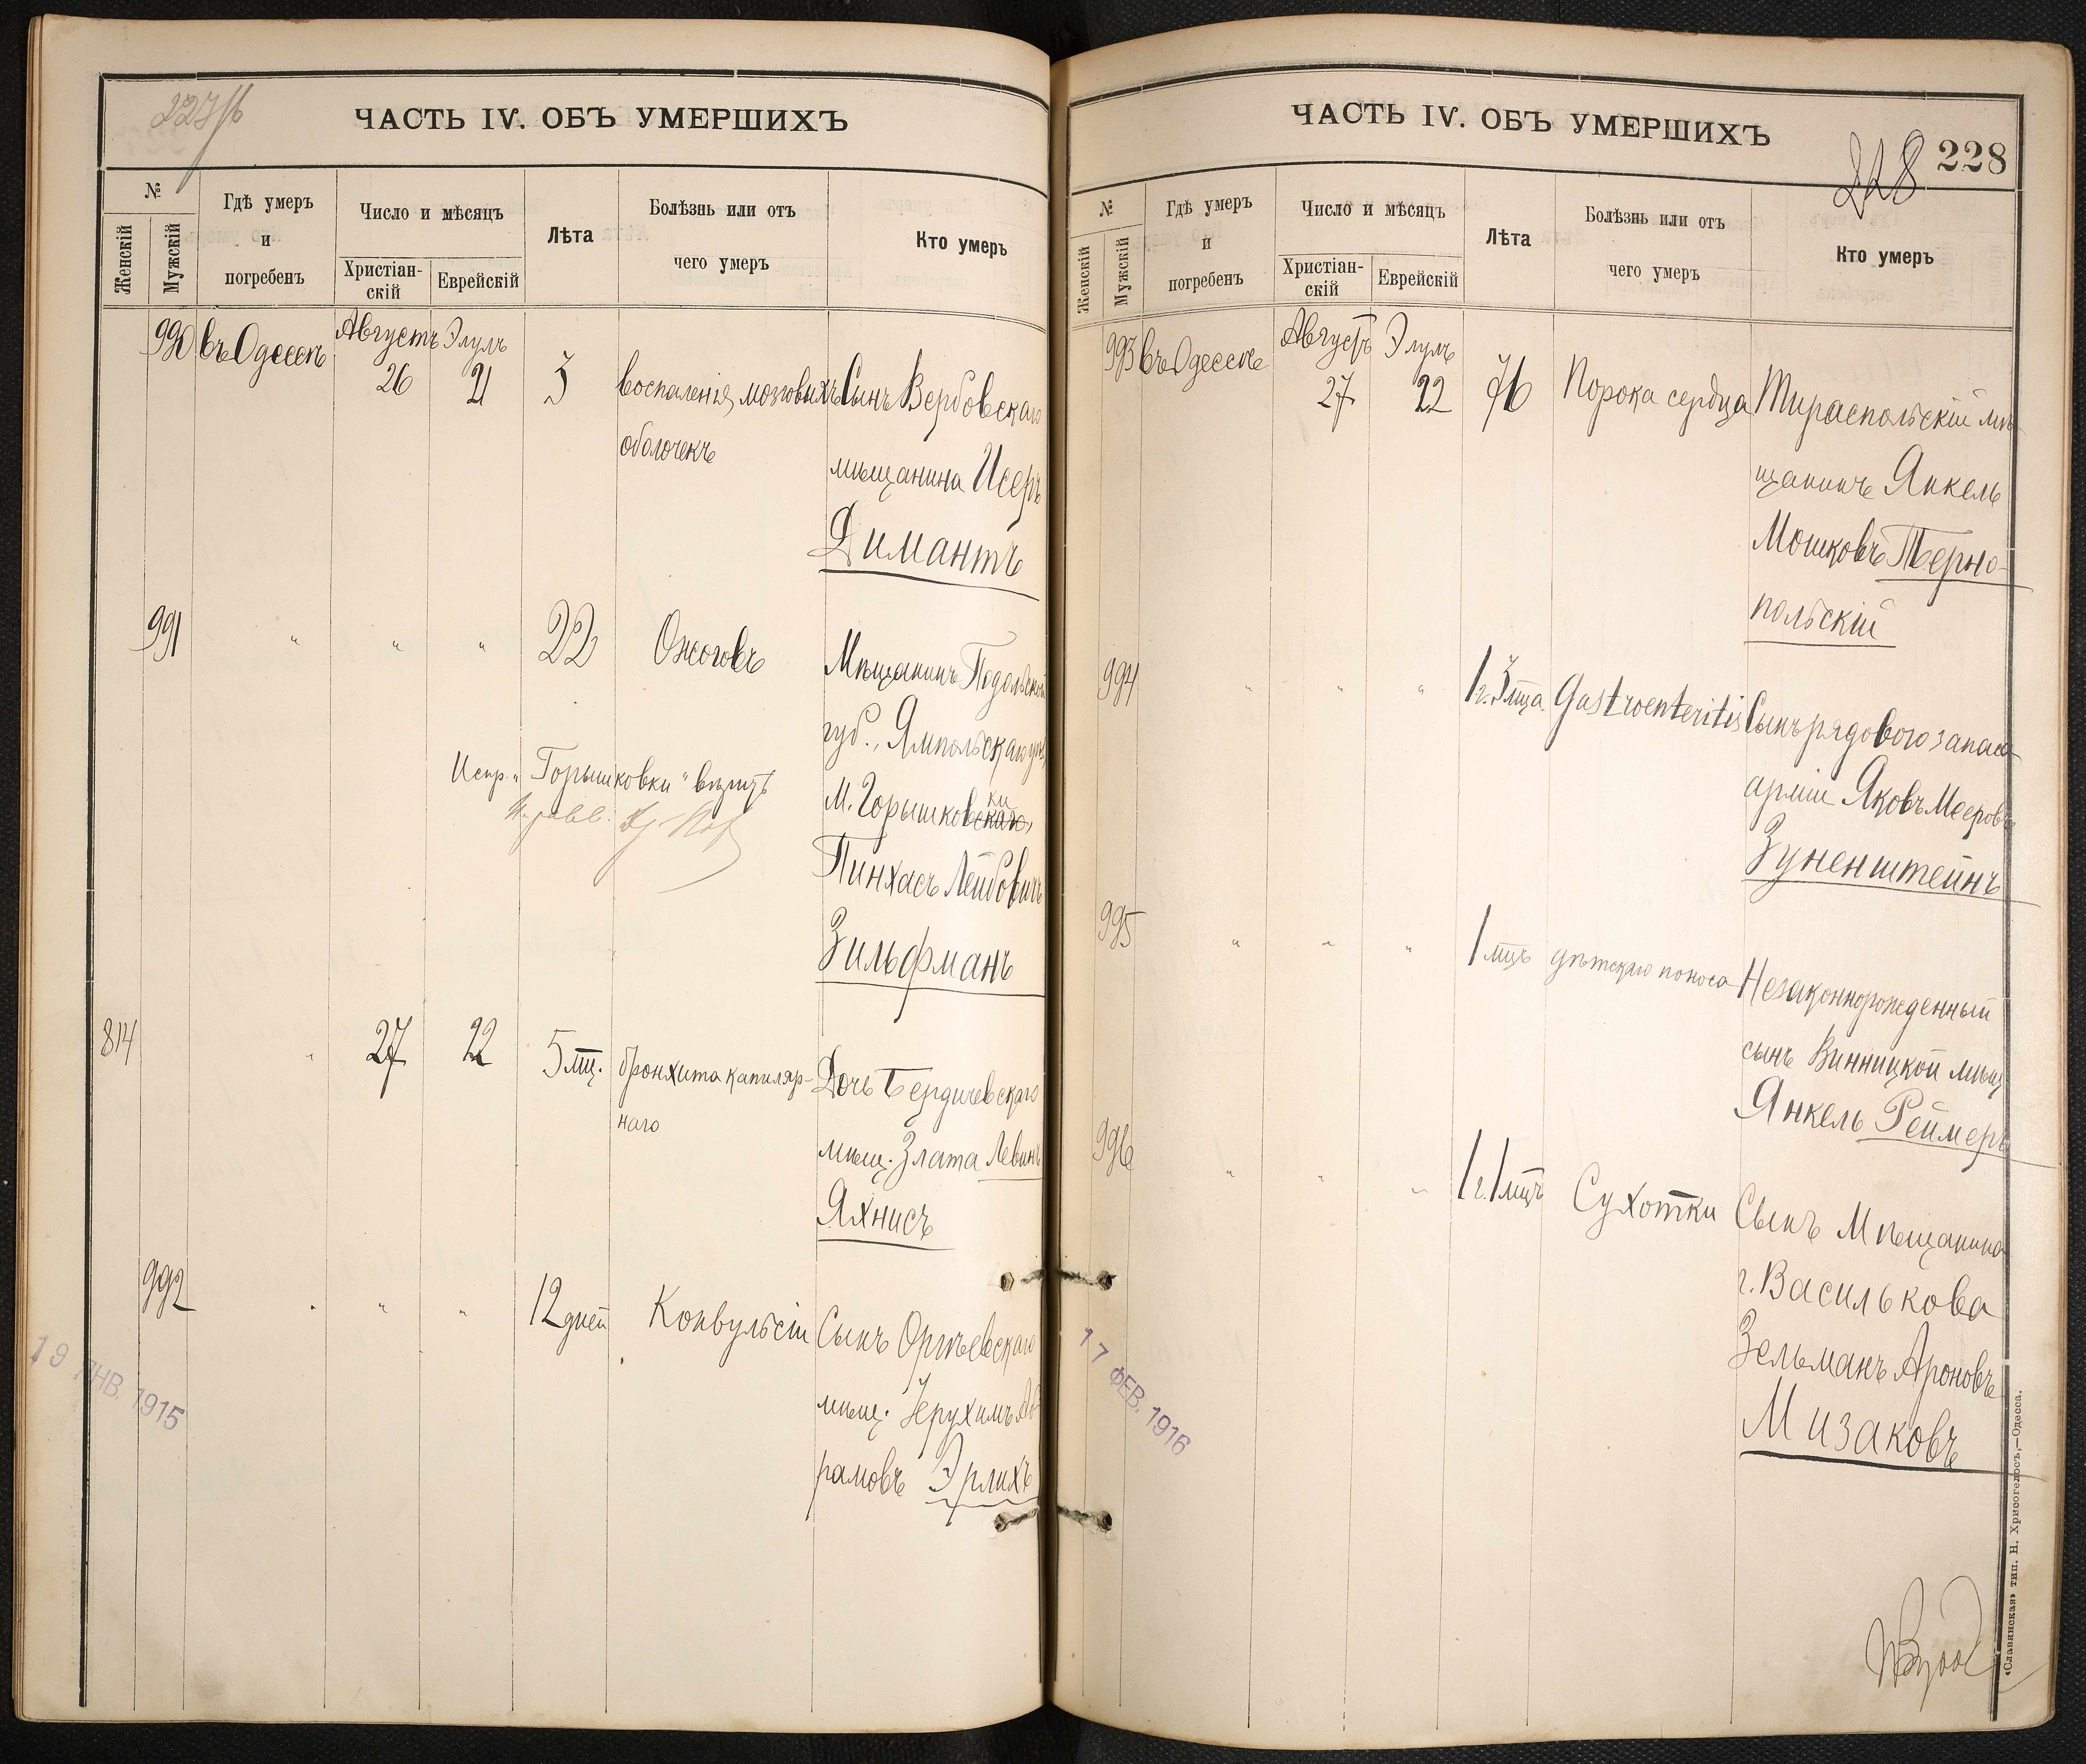 ЧАСТЬ IV. ОБЪ УМЕРШИХЪ
№
Женскій
Мужскій
Гдѣ умеръ
и
погребенъ
Число и мѣсяцъ
Христіан-
скій
Еврейскій
Лѣта
Болѣзнь или отъ
чего умеръ
Кто умеръ
990 въ Одессѣ Августъ Элулъ
26 21 3 воспаленія мозговыхъ Сынъ Вербовскаго
оболочекъ
мѣщанина Исеръ
Димантъ
991 " " " 22 Ожоговъ Мѣщанинъ Подольской
губ., Ямпольскаго
Испр. "Горышковки" вѣрить
м. Горышковскаго ки
Пинхасъ Лейбовичъ
Зильфманъ
814 " 27 22 5 мц. бронхита капиляр- Дочь Бердичевскаго
наго
мѣщ. Злата Левинъ
Яхнисъ
992 " " " 12 дней Конвульсіи Сынъ Оргѣевскаго
мѣщ. Іерухимъ Аб-
рамовъ Эрлихъ
19 ЯНВ. 1915
ЧАСТЬ IV. ОБЪ УМЕРШИХЪ
228 228
№
Женскій
Мужскій
Гдѣ умеръ
и
погребенъ
Число и мѣсяцъ
Христіан-
скій
Еврейскій
Лѣта
Болѣзнь или отъ
чего умеръ
Кто умеръ
993 въ Одессѣ Августъ Элулъ
27 22 76 Порока сердца Тираспольскій мѣ-
щанинъ Янкель
Мошковъ Терно-
польскій
994 " " " 1 г. 3 мца. Gastroenteritis Сынъ рядового запаса
арміи Яковъ Мееровъ
Зуненштейнъ
995 " " " 1 мцъ дѣтскаго поноса Незаконнорожденный
сынъ Винницкой мѣщ
Янкель Реймеръ
996 " " " 1 г. 1 мцъ Сухотки Сынъ Мѣщанина
г. Василькова
Зельманъ Ароновъ
Мизаковъ
17 ФЕВ. 1916
«Славянская» тип. Н. Хрисогелосъ,—Одесса.